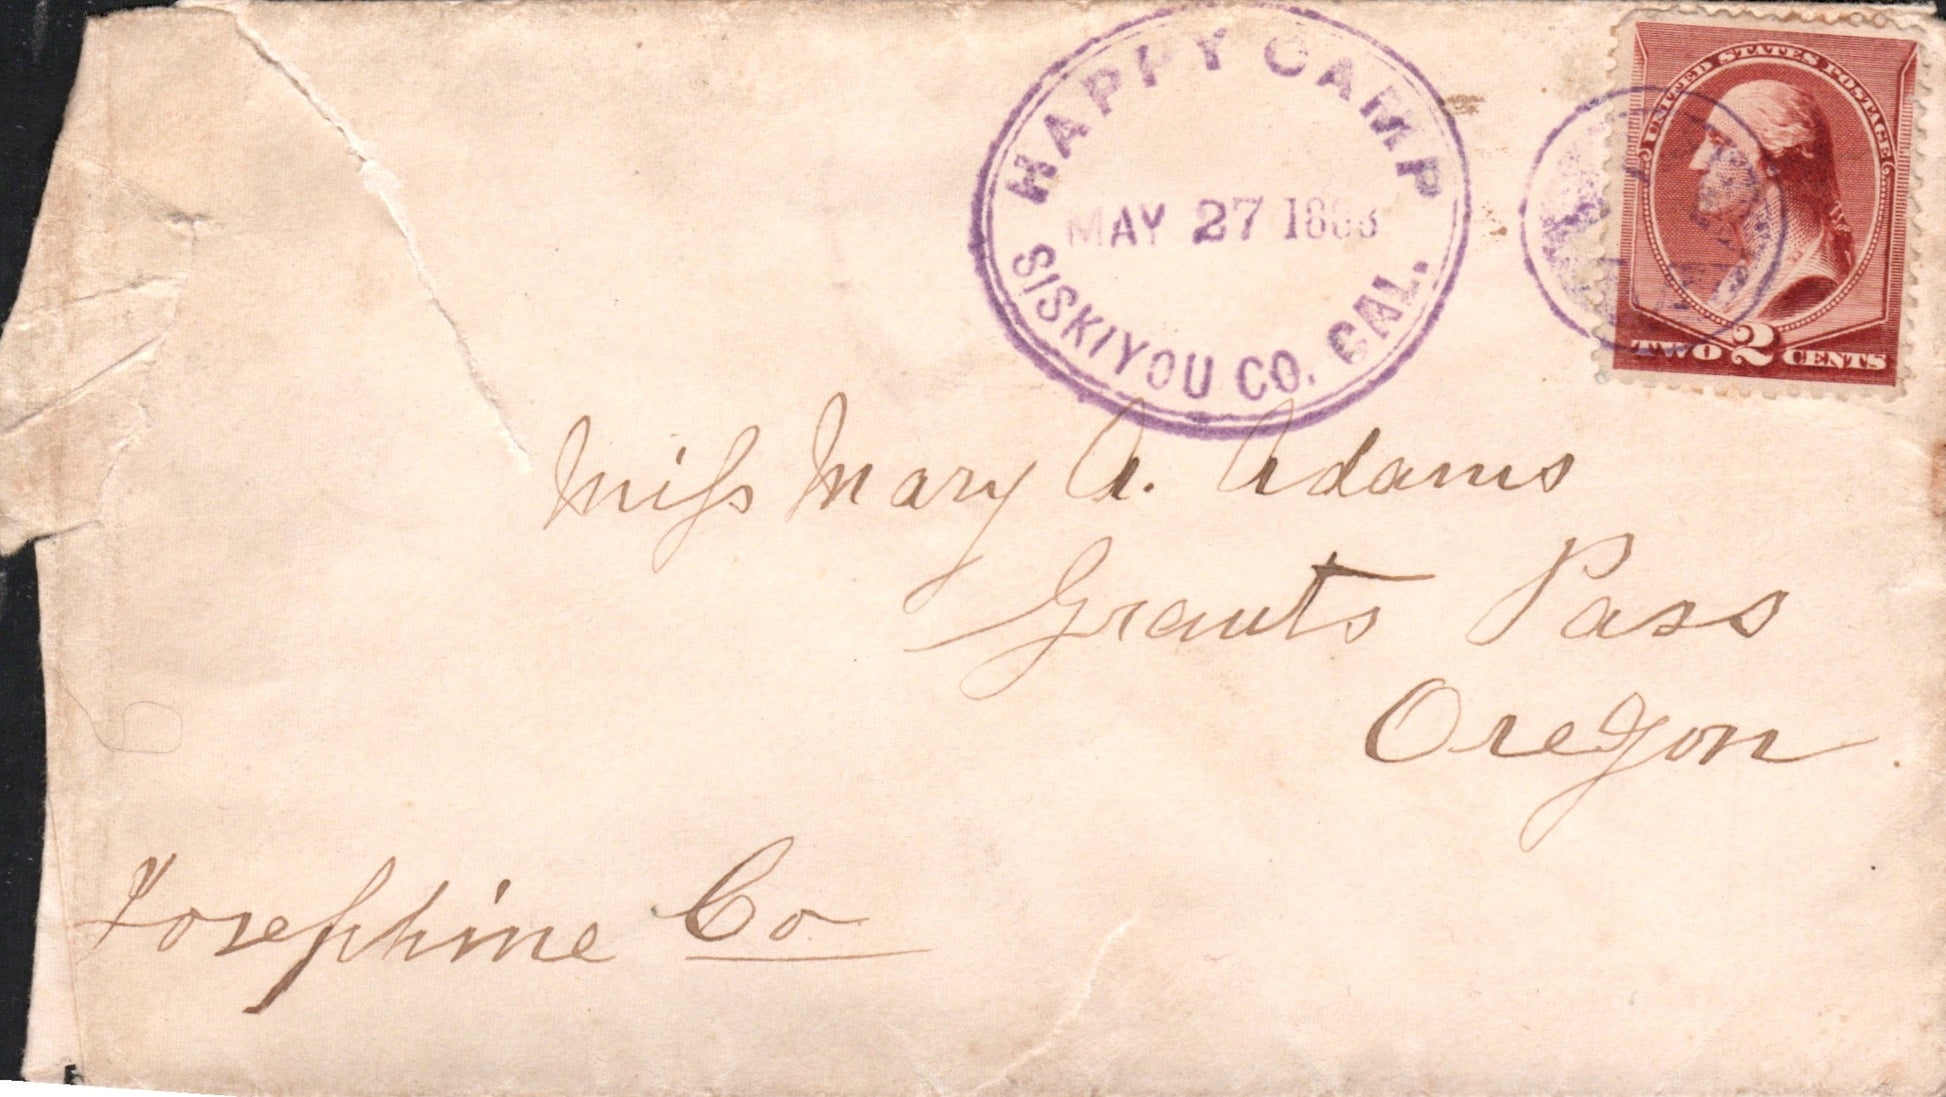 HAPPY CAMP
MAY 27
SISKIYOU CO. CAL.
UNITED STATES POSTAGE
TWO 2 CENTS
Miſs Mary A. Adams
Grants Pass
Oregon.
Josephine Co